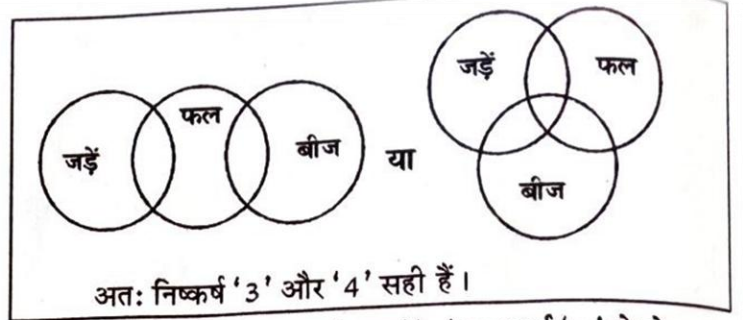 जड़ें फल बीज या जड़ें फल बीज
अतः निष्कर्ष ‘3’ और ‘4’ सही हैं।